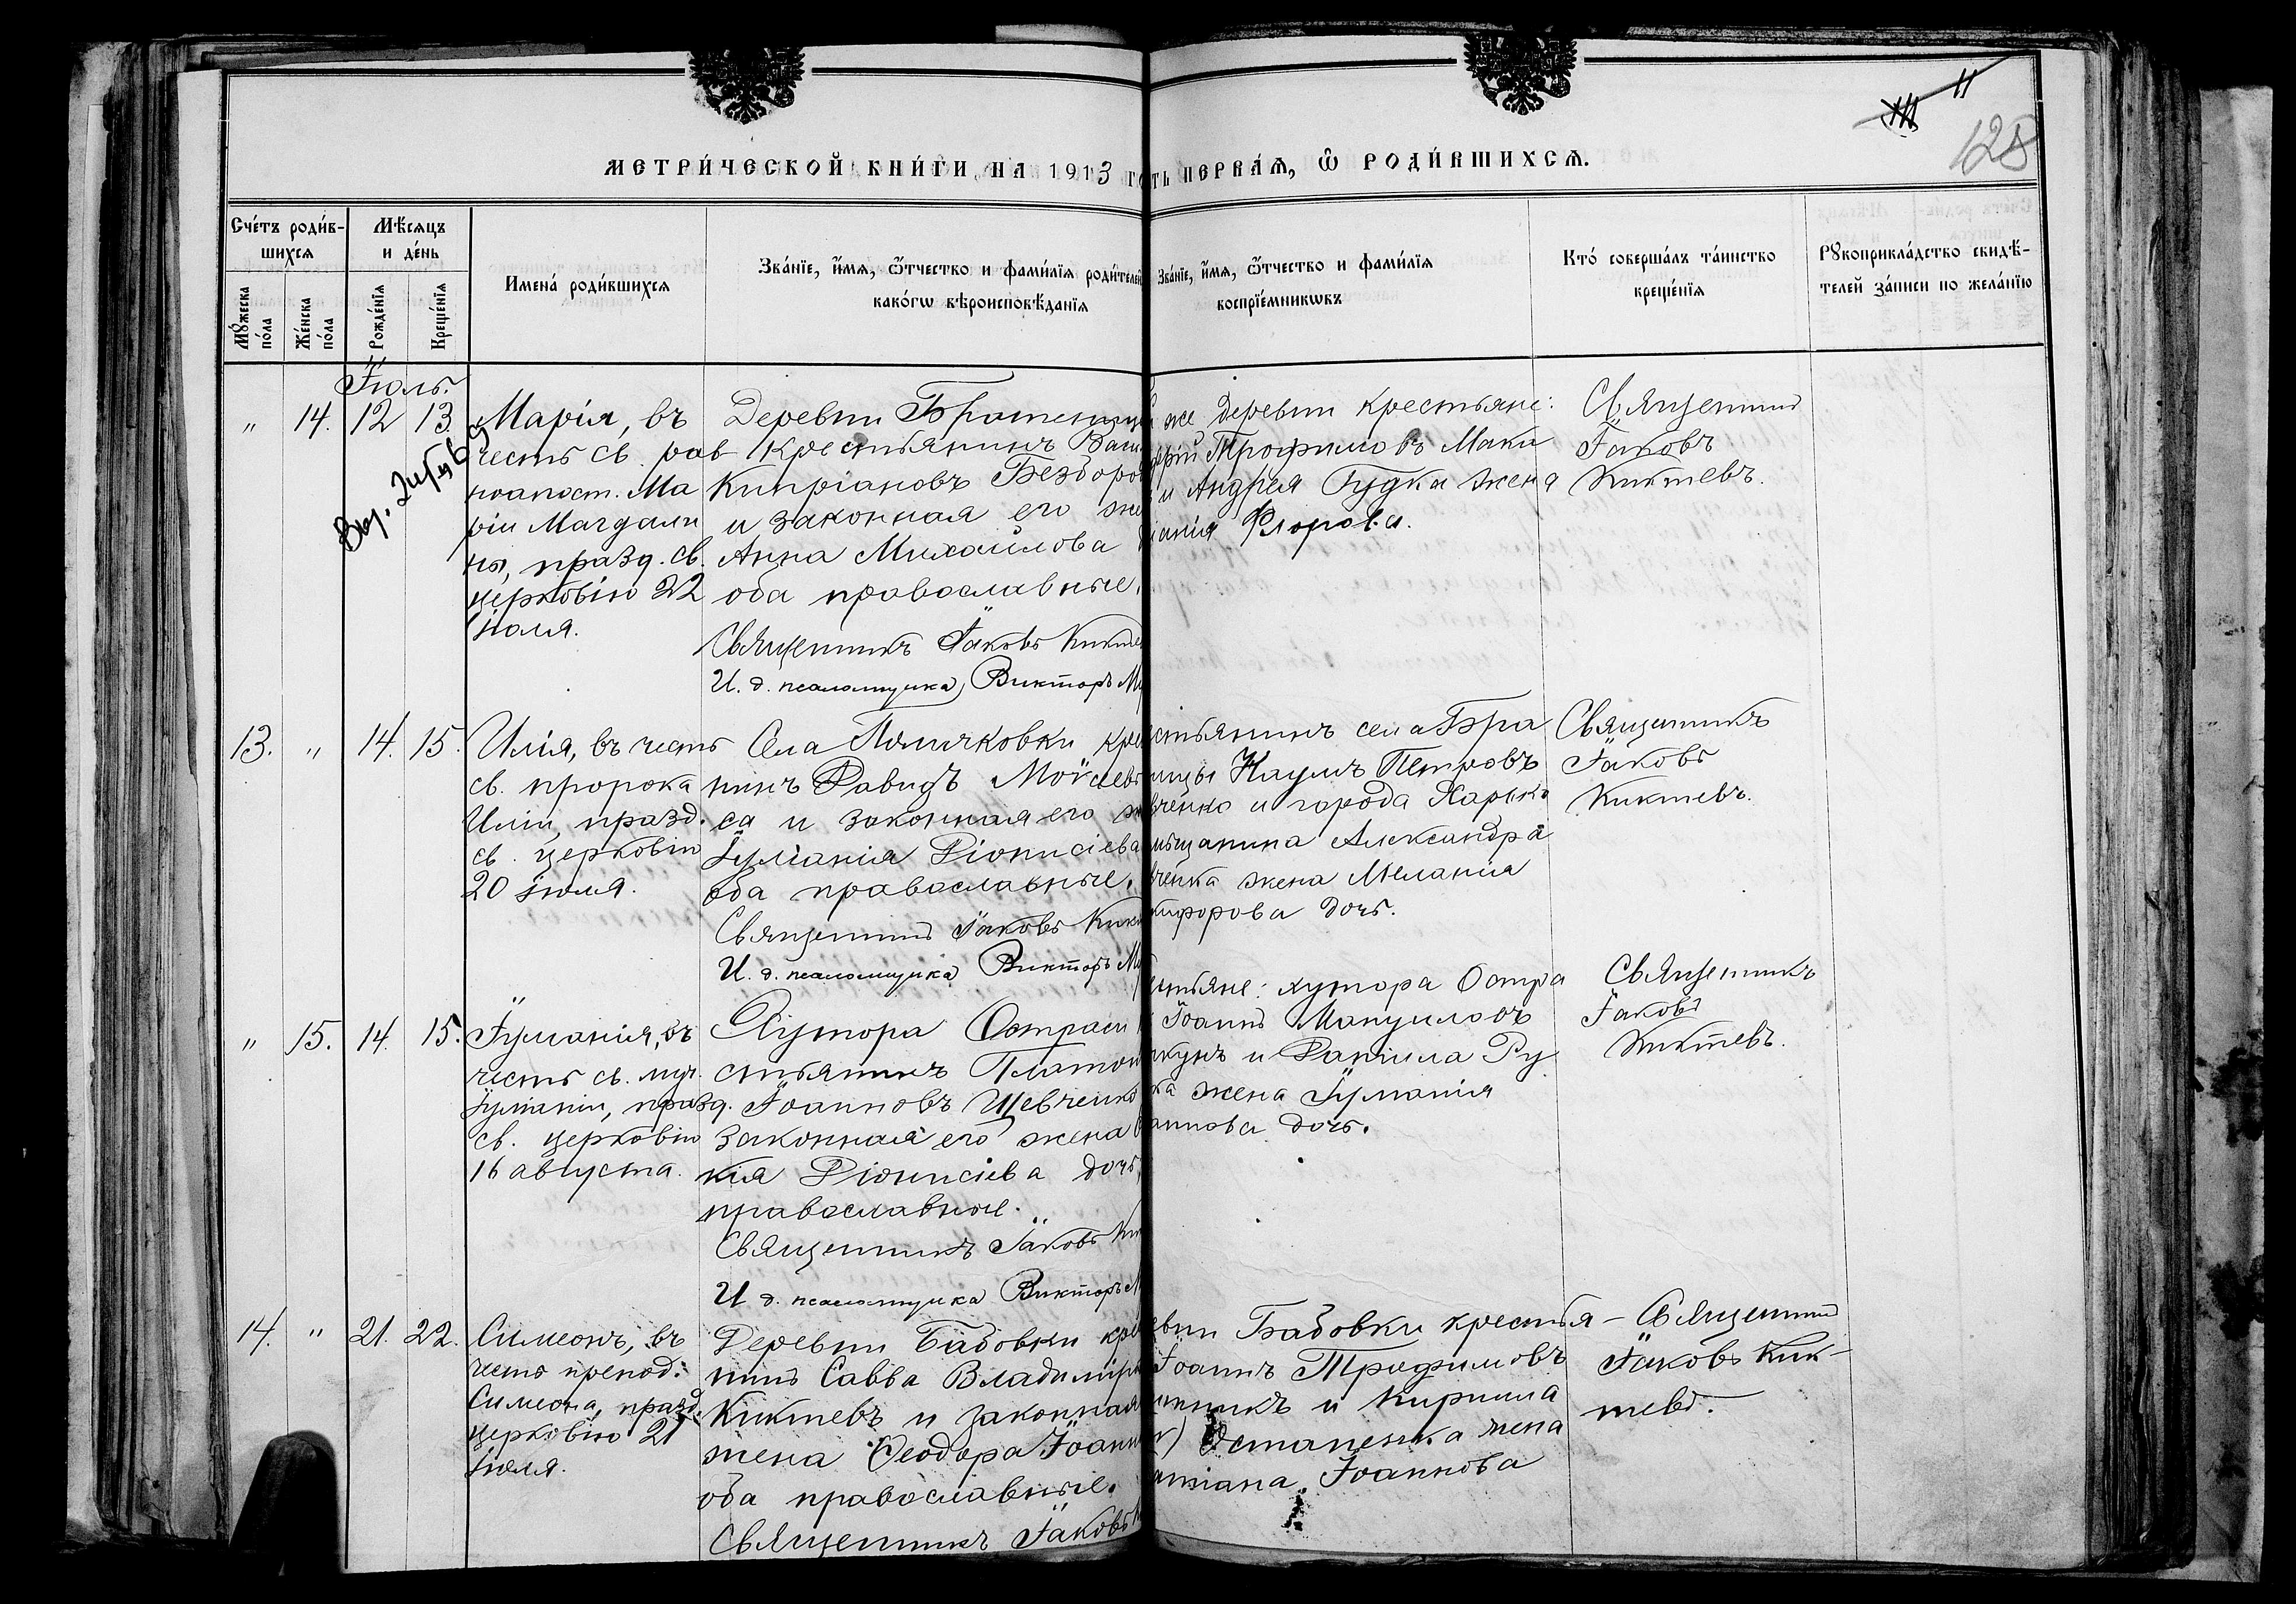 11
128
МЕТРИ́ЧЕСКОЙ КНИ́ГИ НА 1913 ГОТЬ ПЕРВАѦ, Ѿ РОДИ́ВШИХСѦ.
Сче́тъ роди́в-
шихсѧ
Мѣ́сѧцъ
и де́нь
Мꙋ́жеска по́ла
Же́нска по́ла
Рожде́нїѧ
Креще́нїѧ
Имена́ роди́вшихсѧ
Зва́нїе, и́мѧ, ѻ́тчество и фами́лїѧ роди́телей
како́гѡ вѣроисповѣ́данїѧ
Зва́нїе, и́мѧ, ѻ́тчество и фами́лїѧ
воспрїе́мникѡвъ
Кто́ соверша́лъ та́инство
креще́нїѧ
Рꙋкоприкла́дство свидѣ́-
телей за́писи по жела́нїю
Іюль.
" 14. 12 13.
Марія, въ
честь св. рав
ноапост. Ма
ріи Магдали
ны, празд. св.
церковію 22
іюля.
Деревни
крестьянинъ
Кипріановъ Безборо
и законная его же
Анна Михайлова
оба православные.
Священникъ Іаковъ Кикте
И. д. псаломщика Викторъ М
же деревни крестьяне:
Трофимовъ Маки
и Андрея Гудка жена
Флорова.
Священникъ
Іаковъ
Киктевъ.
13. " 14. 15.
Илія, въ честь
св. пророка
Иліи, празд.
св. церковію
20 іюля.
Села Поличковки кре
нинъ Давидъ Моѵсеевъ
са и законная его ж
Іуліанія Діонисіева
оба православные.
Священникъ Іаковъ Кик
И. д. псаломщика Викторъ М
стьянинъ села Бра
ицы Наумъ Петровъ
вченко и города Харько
мѣщанина Александра
ченка жена Меланія
кифорова дочь.
Священникъ
Іаковъ
Киктевъ.
" 15. 14. 15.
Іуліанія, въ
честь св. муч.
Іуліаніи, празд.
св. церковію
16 августа.
Хутора Остраги
стьянинъ Платон
Іоанновъ Шевченко
законная его жена
кія Діонисіева дочь,
православные.
Священникъ Іаковъ Ки
И д. псаломщика Викторъ М
стьяне: хутора Остра
Іоаннъ Мануиловъ
кунъ и Даніила Ру
ка жена Іуліанія
аннова дочь.
Священникъ
Іаковъ
Киктевъ.
14. " 21. 22.
Симеонъ, въ
честь препод.
Симеона, празд.
церковію 21
іюля.
Деревни Бабовки кре
нинъ Савва Владимір
Киктевъ и законная
жена Ѳеодора Іоанн
оба православные.
Священникъ Іаковъ
евни Бабовки крестья-
Іоаннъ Трофимовъ
инникъ и Кирилла
Остапенка жена
атіана Іоаннова
Священникъ
Іаковъ Кик-
тевъ.